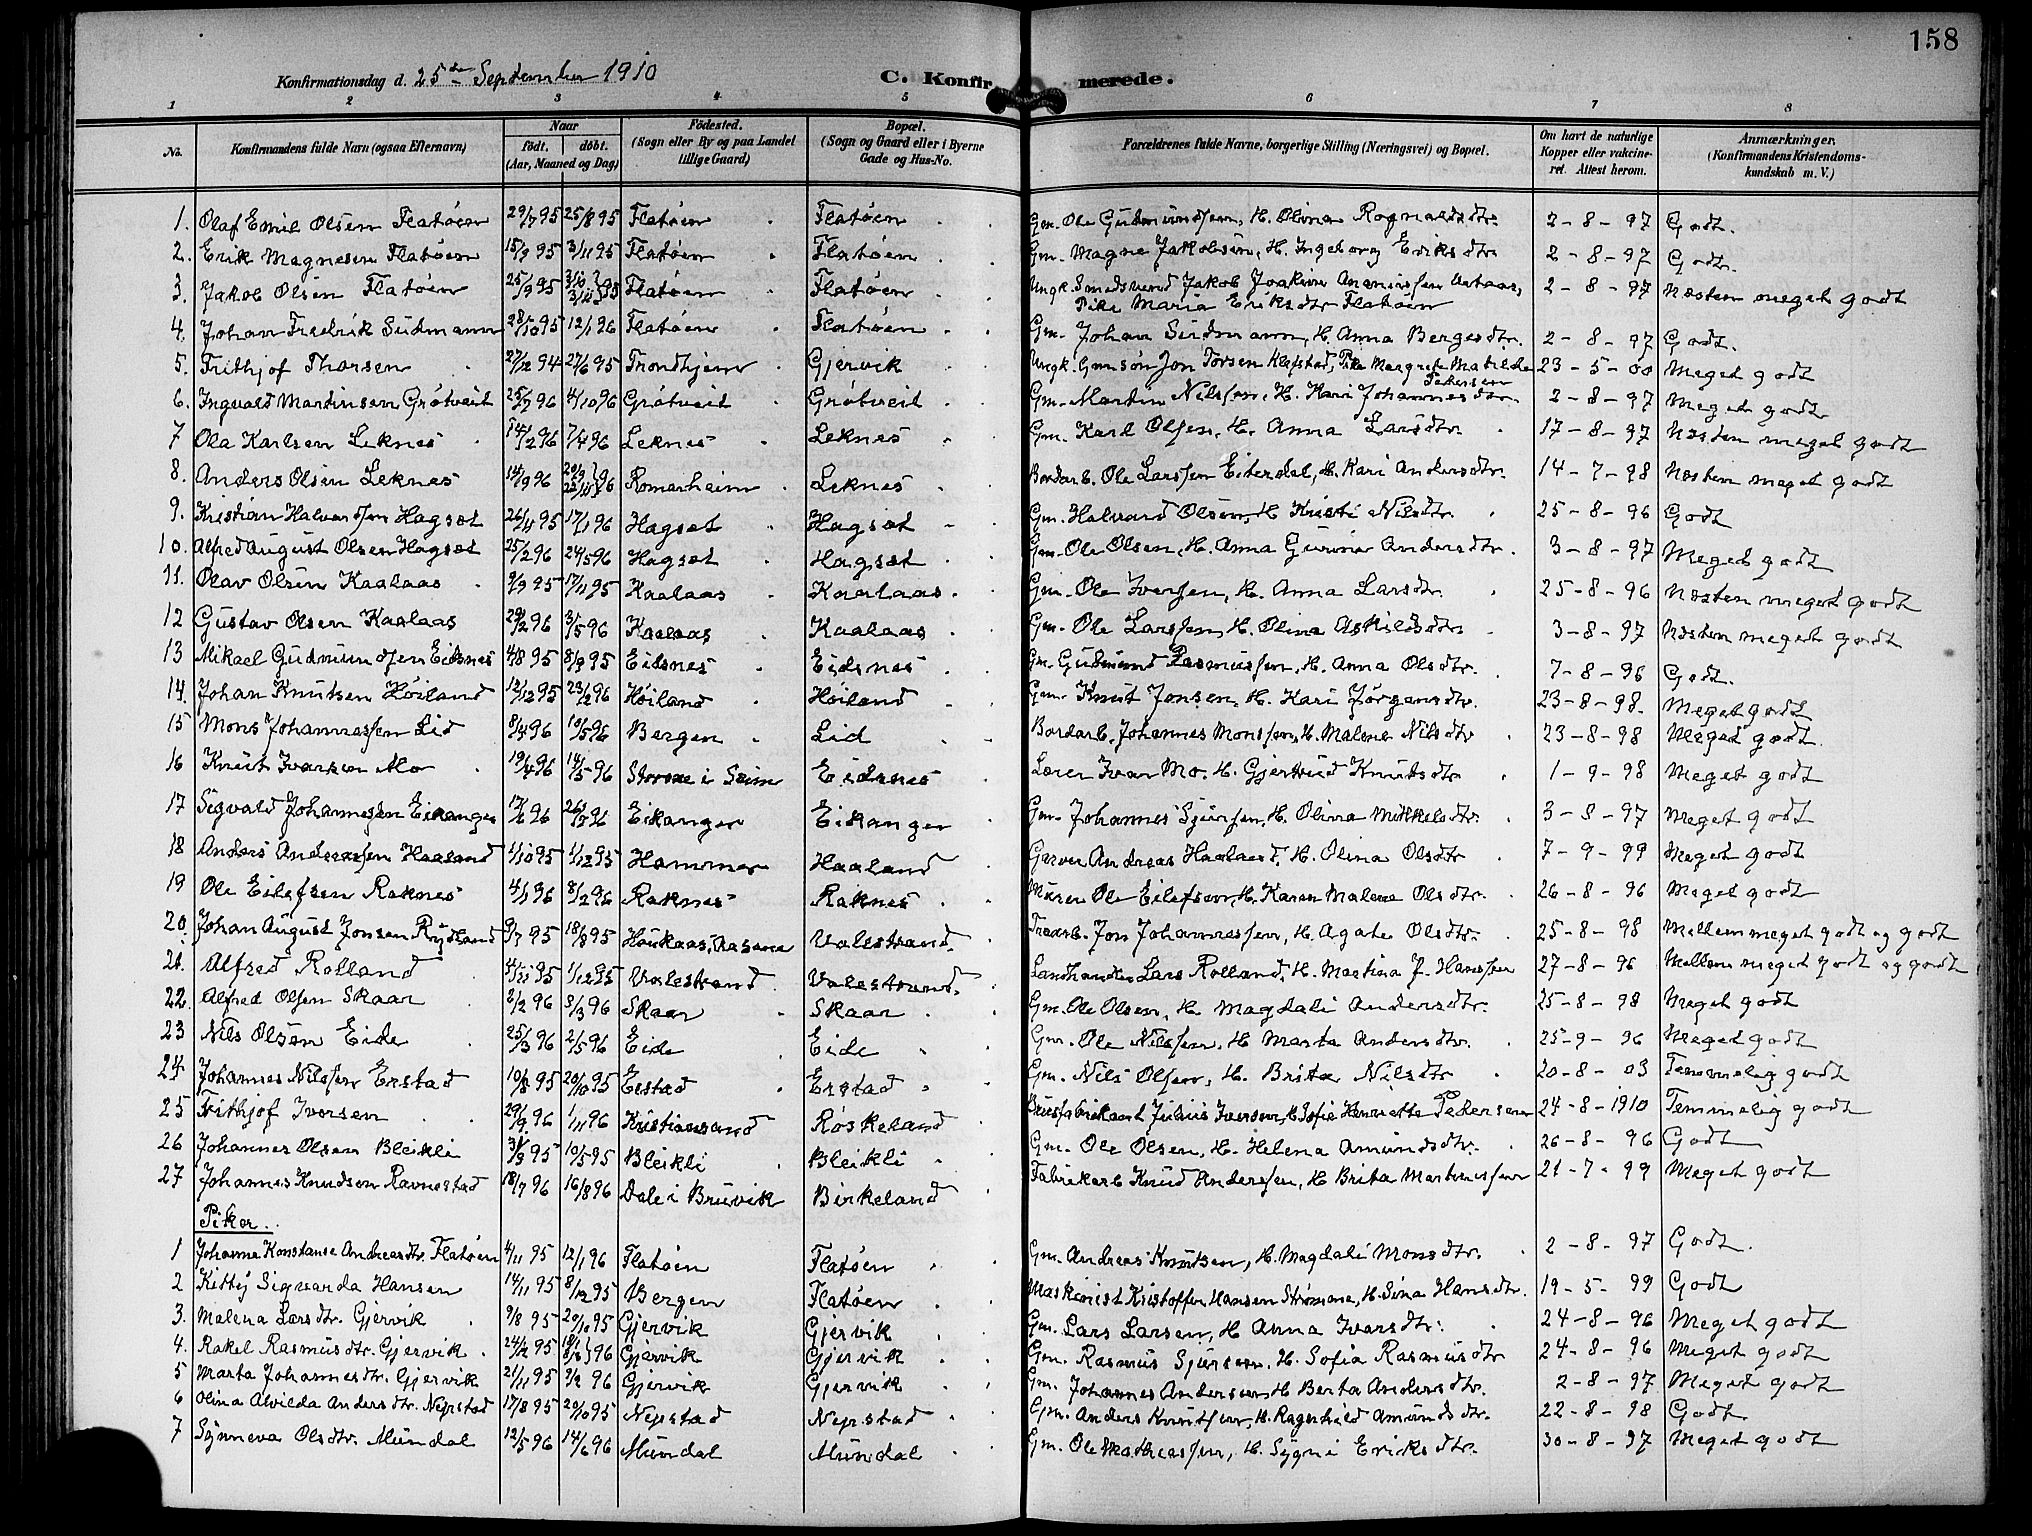 158
Konfirmationsdag d. 25de September 1910 C. Konfirmerede.
1 2 3 4 5 6 7 8
No. Konfirmandens fulde Navn (ogsaa Efternavn) Naar født, døbt. (Aar, Maaned og Dag) Fødested. (Sogn eller By og paa Landet tillige Gaard) Bopæl. (Sogn og Gaard eller i Byerne Gade og Hus-No. Forældrenes fulde Navne, borgerlige Stilling (Næringsvei) og Bopæl. Om havt de naturlige Kopper eller vakcineret. Attest herom. Anmærkninger. (Konfirmandens Kristendomskundskab m. V.)
1. Olaf Emil Olsen Flatøen 29/7 95 25/8 95 Flatøen Flatøen Gm. Ole Gudmundsen, H. Olina Rognaldsdtr. 2-8-97 Godt.
2. Erik Magnesen Flatøen 15/9 95 3/11 95 Flatøen Flatøen Gm. Magne Jakobsen, H. Ingeborg Eriksdtr. 2-8-97 Godt.
3. Jakob Olsen Flatøen 25/9 95 Flatøen Flatøen Ungk. Smedsvend Jakob Joakim 2-8-97 Næsten meget godt
Pike Maria Eriksdtr Flatøen
4. Johan Fredrik Sudmann 28/10 95 12/1 96 Flatøen Flatøen Gm. Johan Sudmann, H. Anna Bergesdtr. 2-8-97 Godt.
5. Frithjof Thorsen 27/12 94 27/6 95 Trondhjem Gjervik Ungk. Gmsøn Jon Torsen Klefstad, Pike Margrete Matilde Pedersen 23-5-00 Meget godt
6. Ingvald Martinsen Grøtveit 25/7 96 4/10 96 Grøtveit Grøtveit Gm. Martin Nilssen, H. Kari Johannesdtr. 2-8-97 Meget godt
7 Ola Karlsen Leknes 14/2 96 7/4 96 Leknes Leknes Gm. Karl Olsen, H. Anna Larsdtr. 17-8-97 Næsten meget godt
8. Anders Olsen Leknes 14/9 96 Romarheim Leknes Bordarb. Ole Larssen Eiterdal, H. Kari Andersdtr. 14-7-98 Næsten meget godt
9. Kristian Halvardsen Hagset 26/11 95 17/1 96 Hagset Hagset Gm. Halvard Olsen, H Kristi Nilsdtr. 25-8-96 Godt
10. Alfred August Olsen Hagset 25/2 96 24/5 96 Hagset Hagset Gm. Ole Olsen, H. Anna Gurina Andersdtr. 3-8-97 Meget godt
11. Olav Olsen Kaalaas 9/9 95 17/11 95 Kaalaas Kaalaas Gm. Ole Iversen, H. Anna Larsdtr. 25-8-96 Næsten meget godt
12 Gustav Olsen Kaalaas 29/2 96 3/5 96 Kaalaas Kaalaas Gm. Ole Larssen, H. Olina Askildsdtr. 3-8-97 Næsten meget godt
13 Mikael Gudmundsen Eidsnes 4/8 95 8/9 95 Eidsnes Eidsnes Gm. Gudmund Rasmussen, H. Anna Olsdtr. 7-8-96 Godt.
14. Johan Knutsen Høiland 12/12 95 23/2 96 Høiland Høiland Gm. Knut Jonsen, H. Kari Jørgensdtr. 23-8-98. Meget godt
15 Mons Johannessen Lid 8/4 96 10/5 96 Bergen Lid Bordarb. Johannes Monssen, H. Malene Nilsdtr 23-8-98 Meget godt.
16 Knut Ivarsen Mo 19/4 96 14/5 96 i Seim Eidsnes Lærer Ivar Mo. H. Gjertrud Knutsdtr 1-9-98 Meget godt
17 Sigvald Johannessen Eikanger 17/6 96 26/7 96 Eikanger Eikanger Gm. Johannes Sjursen, H. Olina Mikkelsdtr. 3-8-97 Meget godt
18 Anders Andreassen Haaland 1/10 95 1/12 95 Hammer Haaland Garver Andreas Haaland, H. Olina Olsdtr 7-9-99 Meget godt
19 Ole Eilefsen Raknes 4/1 96 8/2 96 Raknes Raknes Murer Ole Eilefsen, H. Karen Malene Olsdtr. 26-8-96 Meget godt
20. Johan August Jonsen Rydland 9/7 95 18/8 95 Haukaas, Aasane Valestrand. Jon Johannessen, H. Agate Olsdtr. 25-8-98 Mellem meget godt og godt
21. Alfred Rolland 4/11 95 1/12 95 Valestrand Valestrand. Landhandler Lars Rolland, H. Martina J. Hanssen 27-8-96 Mellem meget godt og godt
22. Alfred Olsen Skaar 2/2 96 8/3 96 Skaar Skaar Gm. Ole Olsen, H. Magdali Andersdtr. 25-8-98 Meget godt
23 Nils Olsen Eide 25/3 96 2/5 96 Eide Eide Gm. Ole Nilssen, H Marta Andersdtr. 25-9-96 Meget godt
24 Johannes Nilssen Erstad 10/8 95 20/10 95 Erstad Erstad Gm. Nils Olsen, H. Brita Nilsdtr 20-8-03 Temmelig godt
25 Frithjof Iversen 29/9 96 1/11 96 Kristiansand Røskeland Julius Iversen, H. Sofie Henriette Pedersen 24-8-1910 Temmelig godt
26 Johannes Olsen Bleikli 31/3 95 10/5 95 Bleikli Bleikli Gm. Ole Olsen, H. Helena Amundsdtr. 26-8-96 Godt
27 Johannes Knudsen Ravnestad 18/7 96 16/8 96 Dale i Bruvik Birkeland Fabrikarb. Knud Anderssen, H Brita 21-7-99 Meget godt
Piker.
1 Johanna Konstanse Andreasdtr. Flatøen 4/11 95 12/1 96 Flatøen Flatøen Gm. Andreas Knutsen, H. Magdali Monsdtr. 2-8-97 Godt.
2 Kitty Sigvarda Hansen 14/11 95 8/12 95 Bergen Flatøen Maskinist Kristoffer Hansen Strømme, H. Sina Hansdtr. 19-5-99 Godt
3. Malena Larsdtr. Gjervik 9/8 95 20/10 95 Gjervik Gjervik Gm. Lars Larsen, H Anna Ivarsdtr. 24-8-96 Meget godt
4. Rakel Rasmusdtr. Gjervik 24/12 95 Gjervik Gjervik Gm. Rasmus Sjursen, H. Sofia Rasmusdtr 24-8-96 Meget godt
5 Marta Johannesdtr. Gjervik 21/11 95 2/2 96 Gjervik Gjervik Gm. Johannes Andersen, H Berta Andersdtr. 2-8-97 Meget godt
6 Olina Alvilda Andersdtr. Nepstad 17/8 95 20/10 95 Nepstad Nepstad Gm. Anders Knutsen, H. Ragnhild Amundsdtr. 22-8-98 Godt
7 Synneva Olsdtr. Mundal 12/5 96 14/6 96 Mundal Mundal Gm. Ole Mathiassen, H. Sygni Eriksdtr. 30-8-97 Meget godt